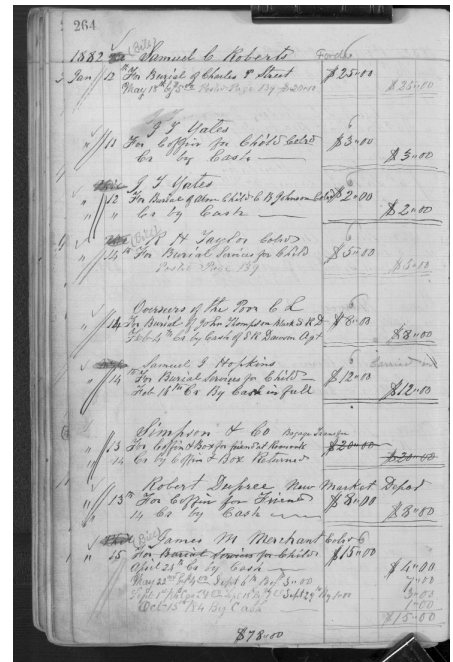 264
1882 (Bill) Samuel C Roberts
Jan 12th For Burial of Charles P Street $25"00
May 18th by Page 139 $25"00
J T Yates
" 11 For Coffin for Child Cold $3"00
Cr by Cash $3"00
J T Yates
" 12 For Burial of Above Child C B Johnson Cold $2"00
" " Cr by Cash $2"00
H Taylor Cold
" 14th For Burial Services for Child $5"00
Page 139 $5"00
Overseers of the Poor C L
" 14 For Burial of John Thompson $8"00
Feb 4th Cr by Cash of S R Dawson Agt $8"00
Samuel G Hopkins
" 14th For Burial Services for Child $12"00
Feb 18th Cr By Cash in full $12"00
Simpson & Co
" 13 For Coffin & Box for friends Remains $20"00
" 14 Cr by Coffin & Box Returned $20"00
Robert Dupree New Market Depot
" 13th For Coffin for Friend $8"00
" 14 Cr by Cash $8"00
James M Merchant Cold
" 15 For Burial Services for Child $15"00
April 25th Cr by Cash $4"00
May 22nd Sept 6th
Sept 29th
Oct 15th 84 By Cash
$15"00
$78"00